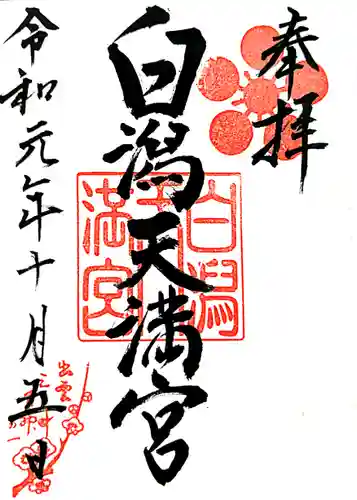 奉拝
白潟天満宮
令和元年十月五日
白潟
天
満宮
出雲